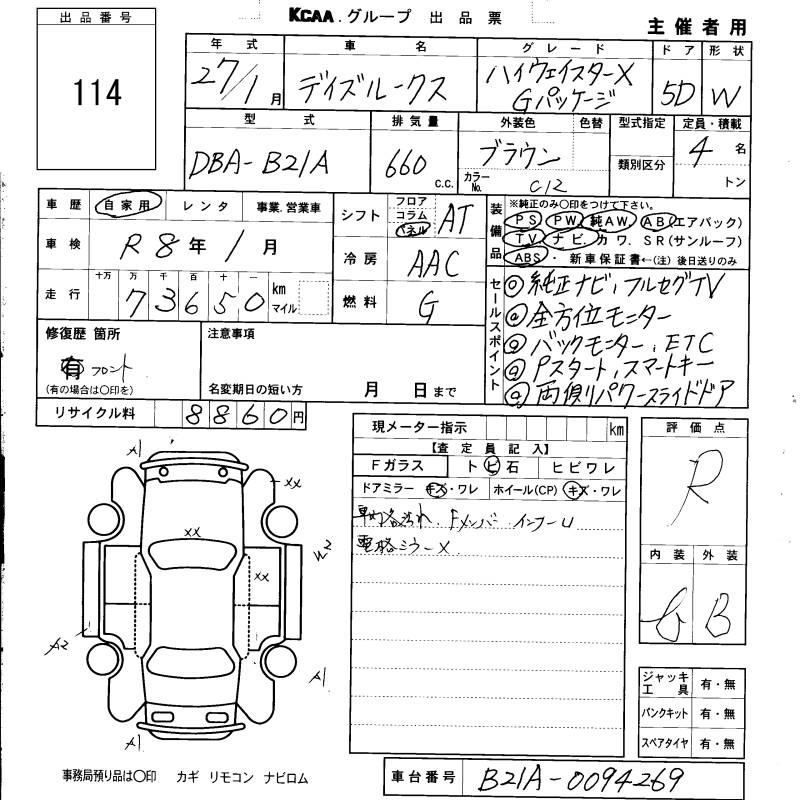 KCAA.グループ 出品票
主催者用
出品番号
114
年式 車名 グレード ドア 形状
27/1月 デイズルークス ハイウェイスターX Gパッケージ 5D W
型式 排気量 外装色 色替 型式指定 定員・積載
DBA-B21A 660 c.c. ブラウン 類別区分 4名
カラーNo. C12 トン
車歴 自家用 レンタ 事業.営業車
車検 R8年1月
走行 十万 万 千 百 十 一
73650 km マイル
シフト フロア コラム パネル AT
冷房 AAC
燃料 G
装備品 ※純正のみ〇印をつけて下さい。
PS PW 純AW AB(エアバック)
TV ナビ. カワ. SR(サンルーフ)
ABS・新車保証書←(注)後日送りのみ
セールスポイント
◎純正ナビ、フルセグTV
◎全方位モニター
◎バックモニター、ETC
◎Pスタート、スマートキー
◎両側パワースライドドア
修復歴 箇所
有 フロント
(有の場合は〇印を)
注意事項
名変期日の短い方 月 日まで
リサイクル料 8860円
現メーター指示 km
【査定員記入】
Fガラス トビ石 ヒビワレ
ドアミラー キズ・ワレ ホイール(CP) キズ・ワレ
Fメンバー インナーU
ミラーX
評価点
R
内装 外装
B
ジャッキ工具 有・無
パンクキット 有・無
スペアタイヤ 有・無
A1
XX
XX
XX
W2
A2
A1
A1
事務局預り品は〇印 カギ リモコン ナビロム
車台番号 B21A-0094269